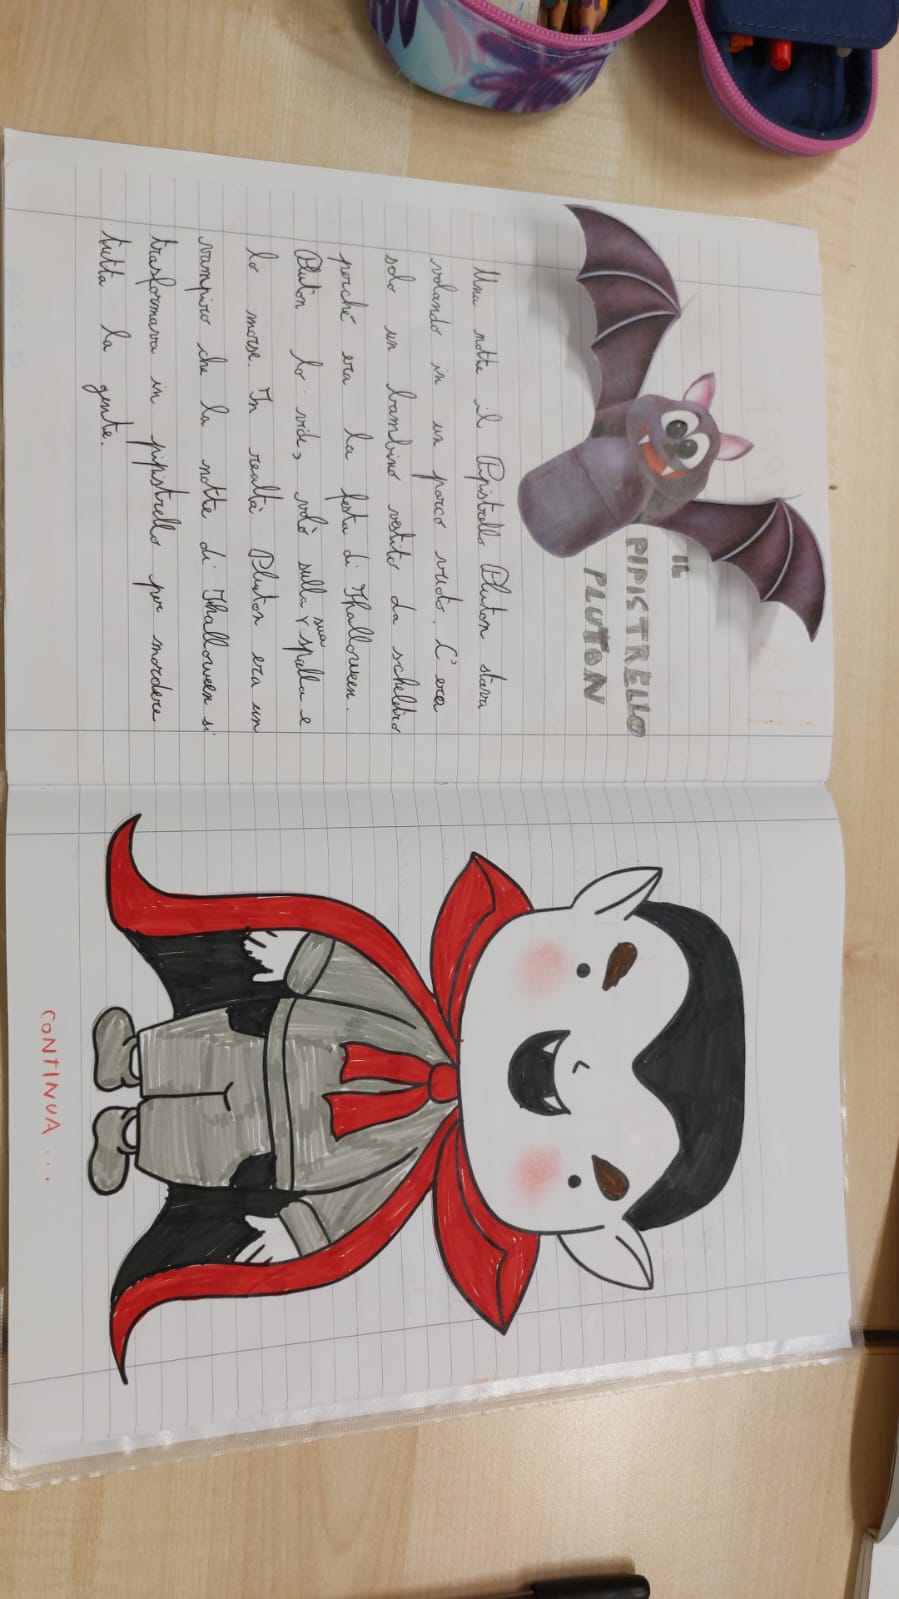 IL
PIPISTRELLO
PLUTON
Una notte il Pipistrello Pluton stava
volando in un parco vuoto. C'era
solo un bambino vestito da scheletro
perché era la festa di Hhalloween.
Pluton lo vide, volò sulla sua spalla e
lo morse. In realtà Pluton era un
vampiro che la notte di Hhalloween si
trasformava in pipistrello per mordere
tutta la gente.
CONTINUA...